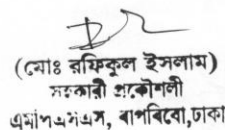 (মোঃ রফিকুল ইসলাম)
সহকারী প্রকৌশলী
এমপিএমএস, বাপবিবো,ঢাকা